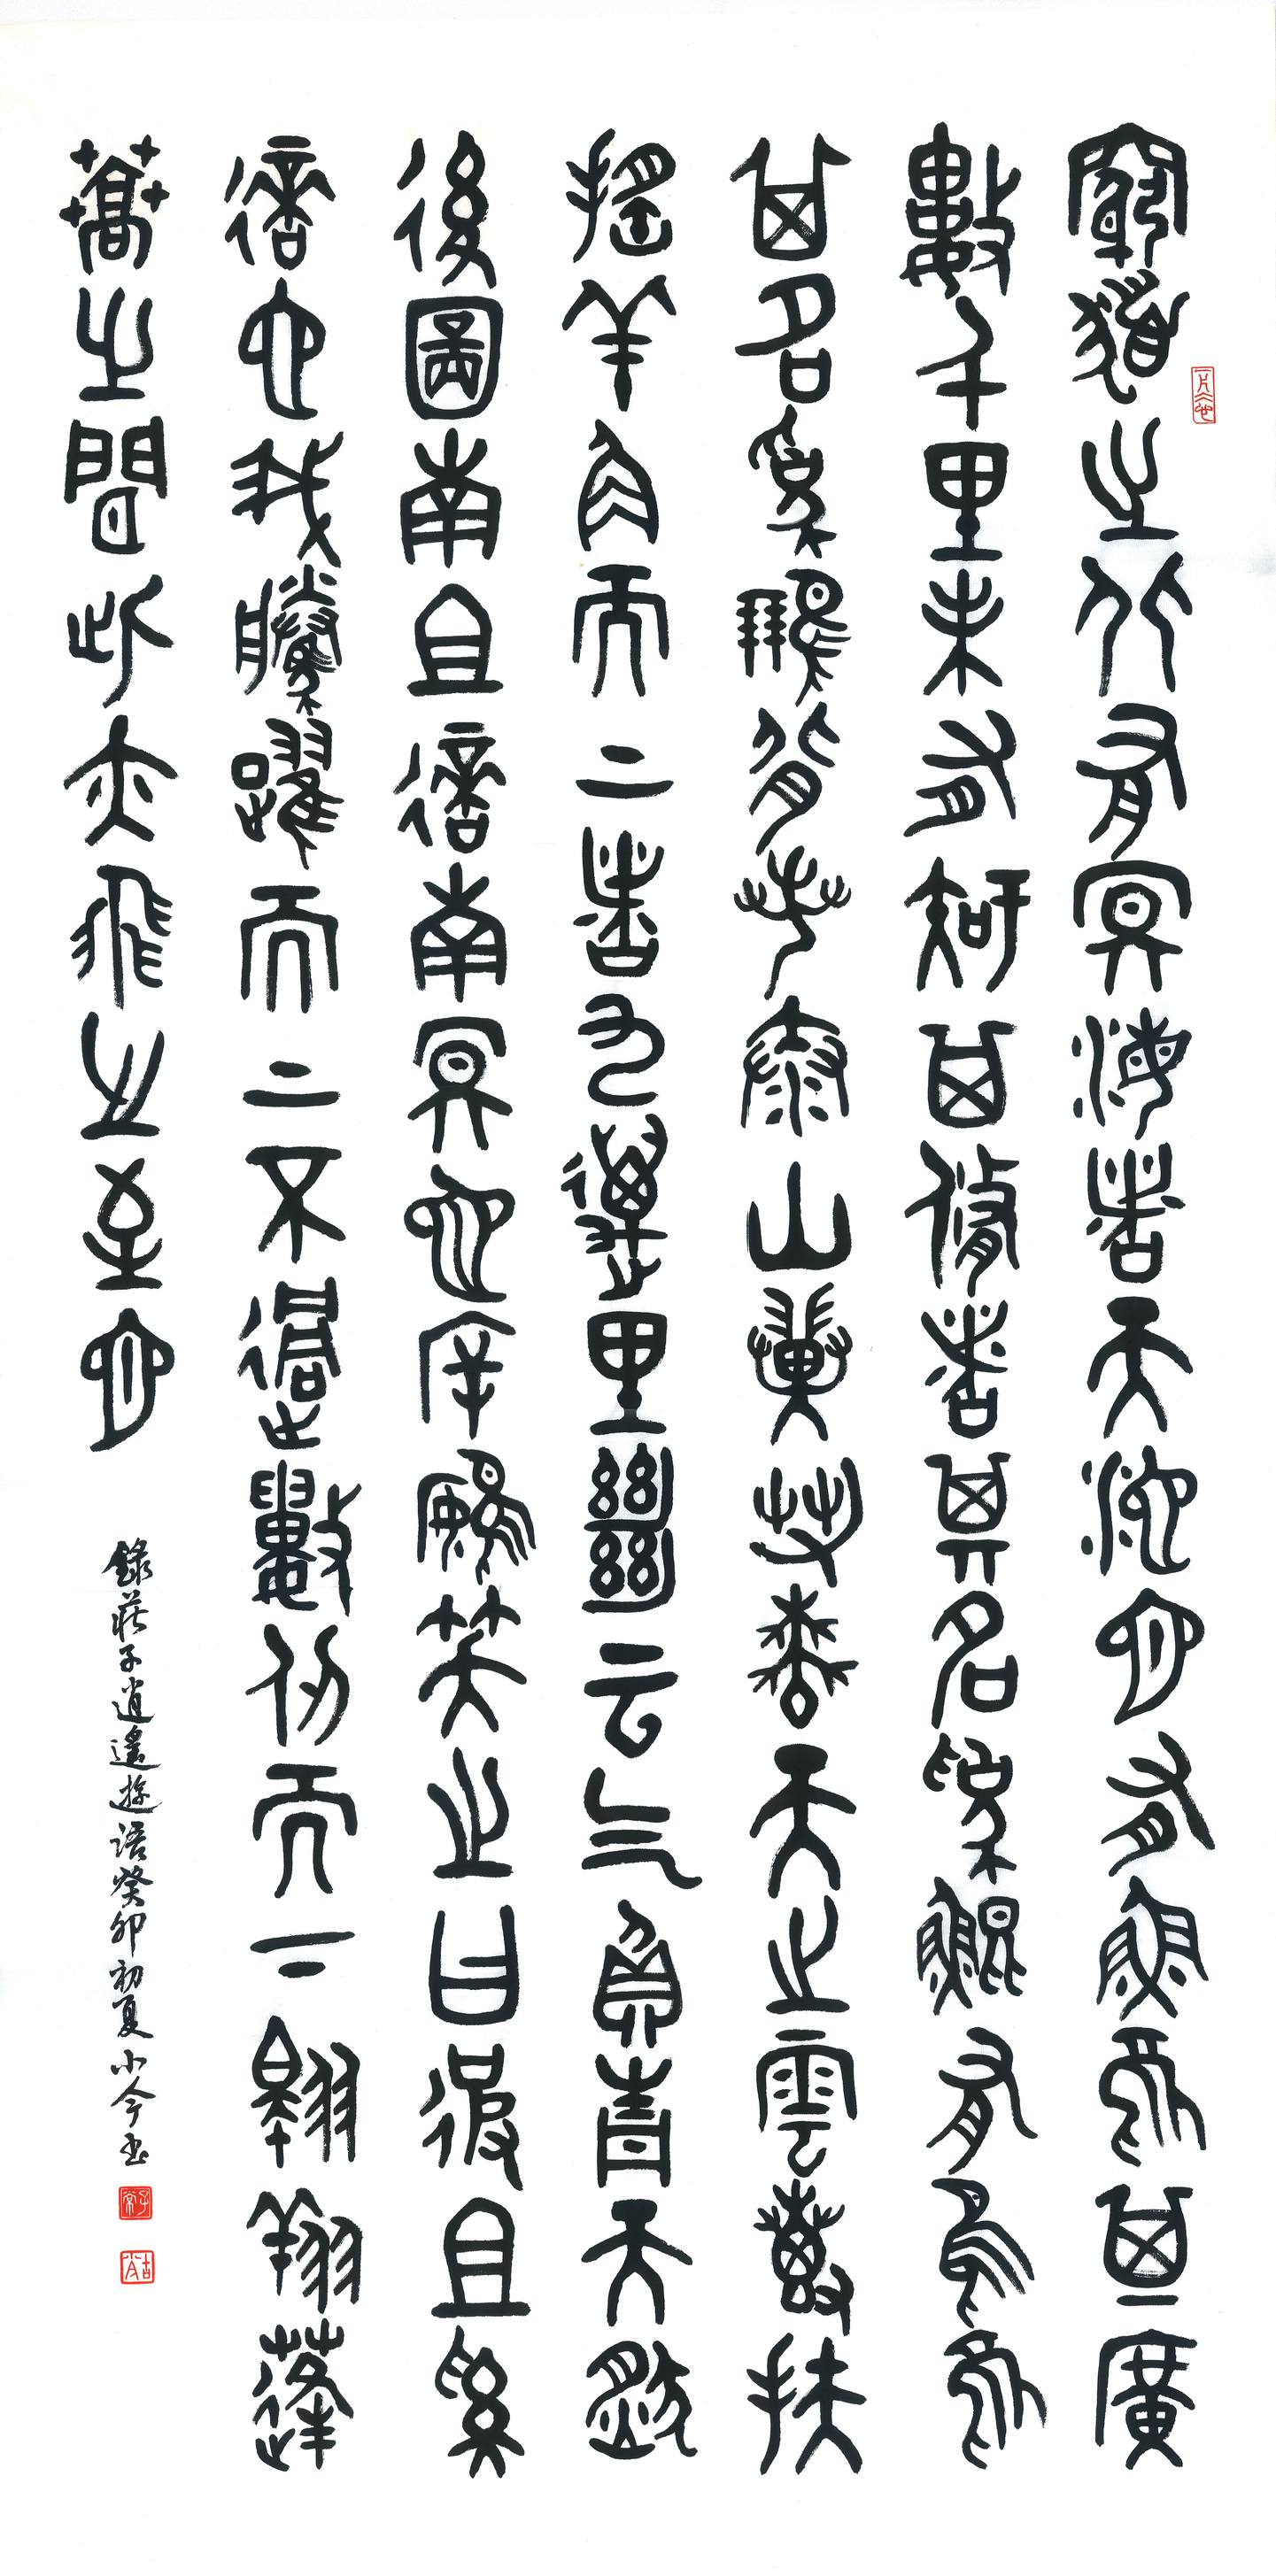 窮髮之北有冥海者天池也有魚焉其廣
數千里未有知其修者其名為鯤有鳥焉
其名為鵬背若泰山翼若垂天之雲摶扶
搖羊角而上者九萬里絕云气負青天然
後圖南且適南冥也斥鴳笑之曰彼且奚
適也我騰躍而上不過數仞而下翱翔蓬
蒿之間此亦飛之至也
錄莊子逍遙遊語癸卯初夏小今书